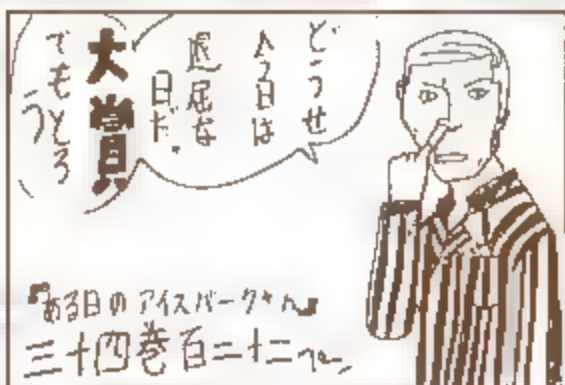 どうせ
今日は
退屈な
日だ。
大賞
でもとろ
う
『ある日のアイスバーグさん』
三十四巻百二十二ページ